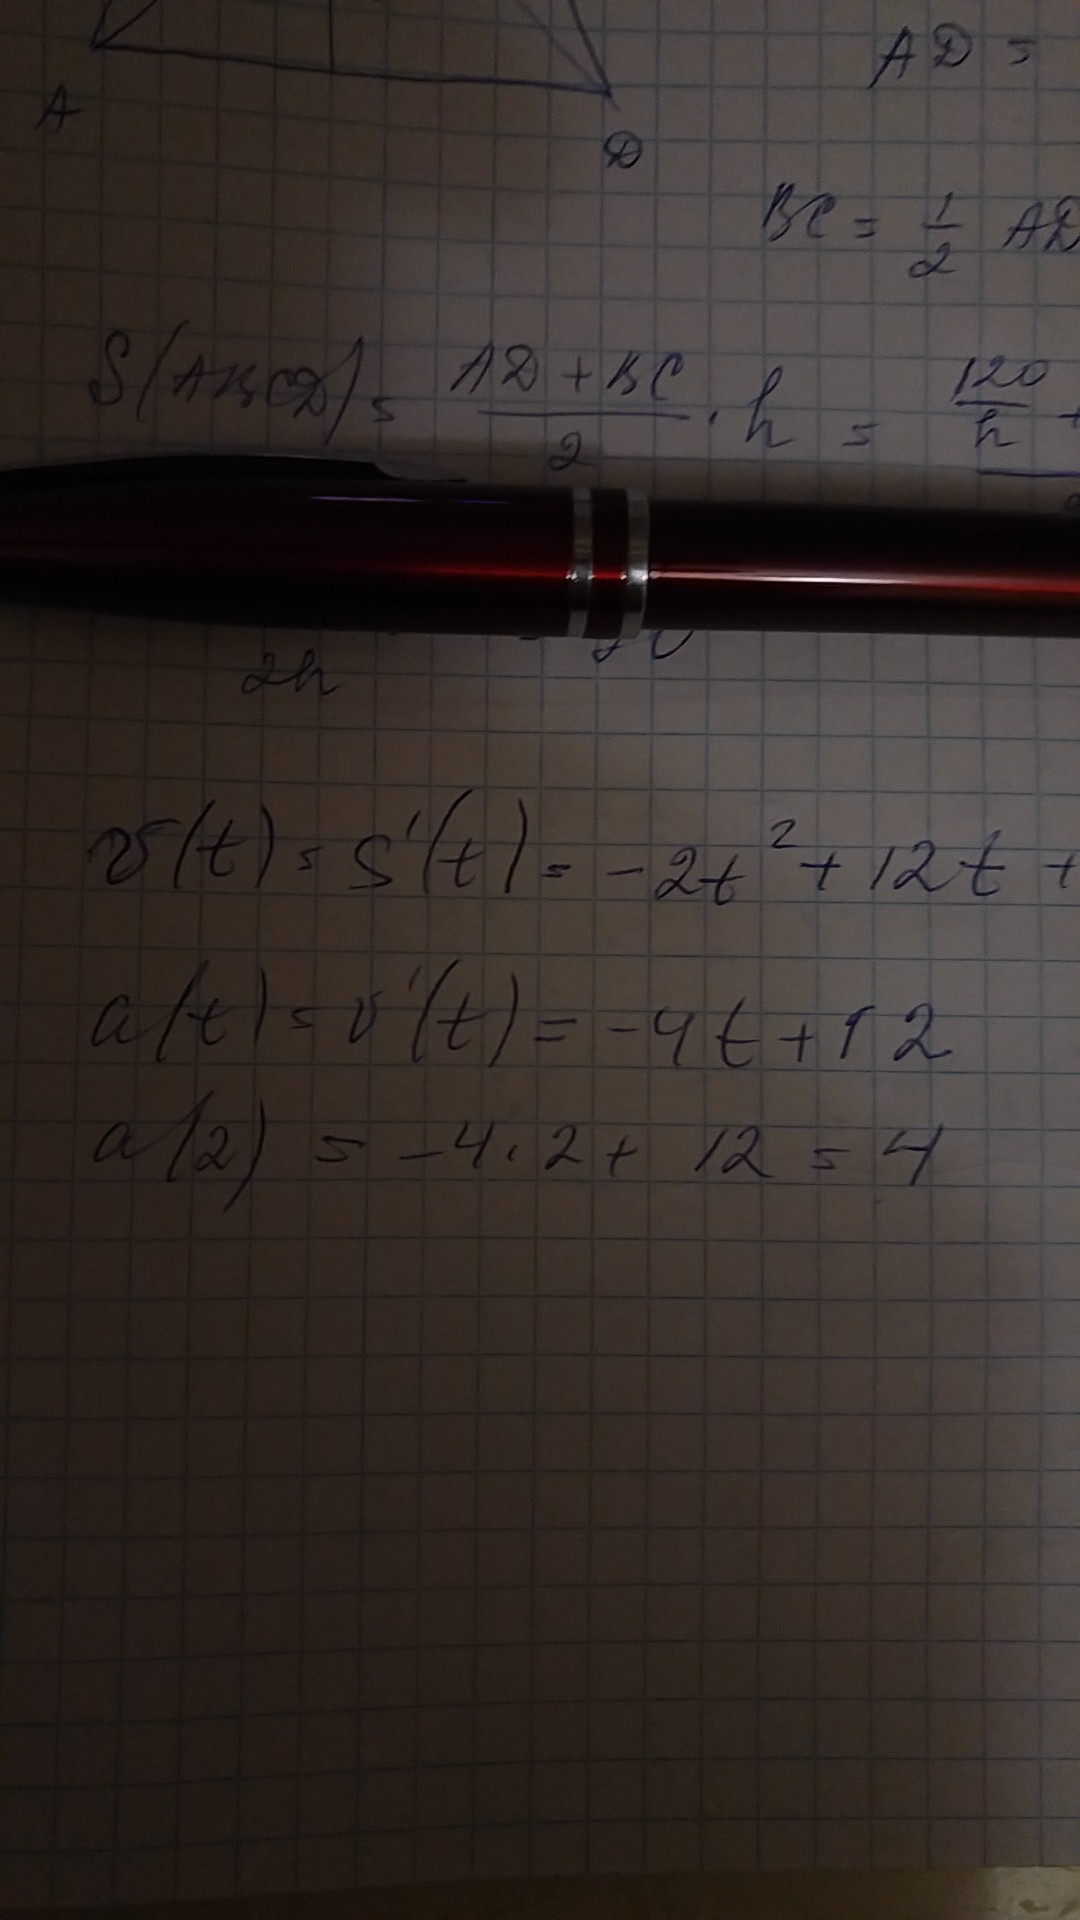 AD =
A
D
BC = 1/2 AD
S(ABCD) = (AD + BC)/2 · h = 120/h +
2h
v(t) = S'(t) = -2t² + 12t +
a(t) = v'(t) = -4t + 12
a(2) = -4·2 + 12 = 4